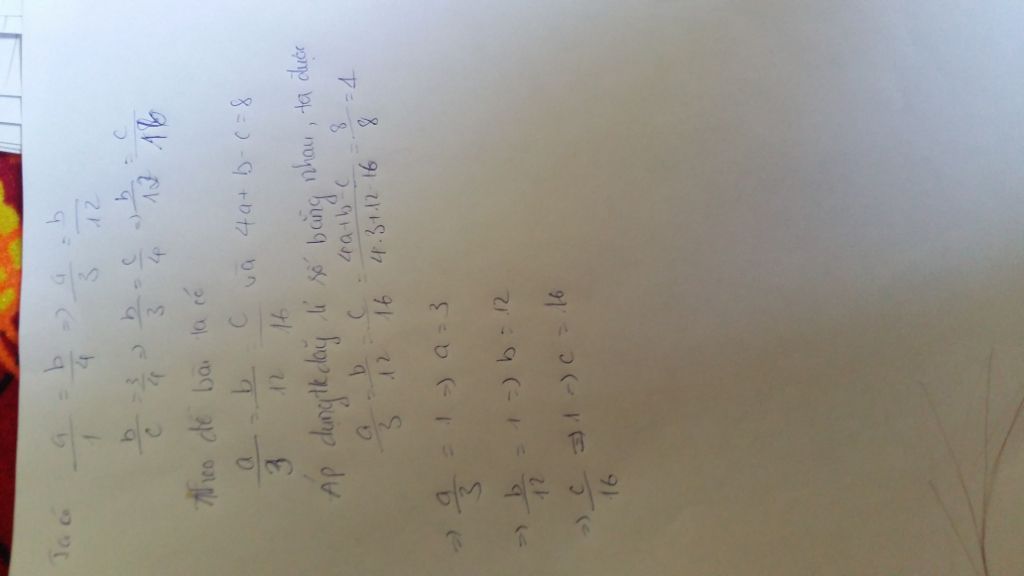 Ta có
a/1 = b/4 => a/3 = b/12
b/c = 3/4 => b/3 = c/4 => b/12 = c/16
Theo đề bài ta có
a/3 = b/12 = c/16 và 4a + b - c = 8
Áp dụng tc dãy tỉ số bằng nhau, ta được
a/3 = b/12 = c/16 = 4a+b-c/4.3+12-16 = 8/8 = 1
=> a/3 = 1 => a = 3
=> b/12 = 1 => b = 12
=> c/16 = 1 => c = 16